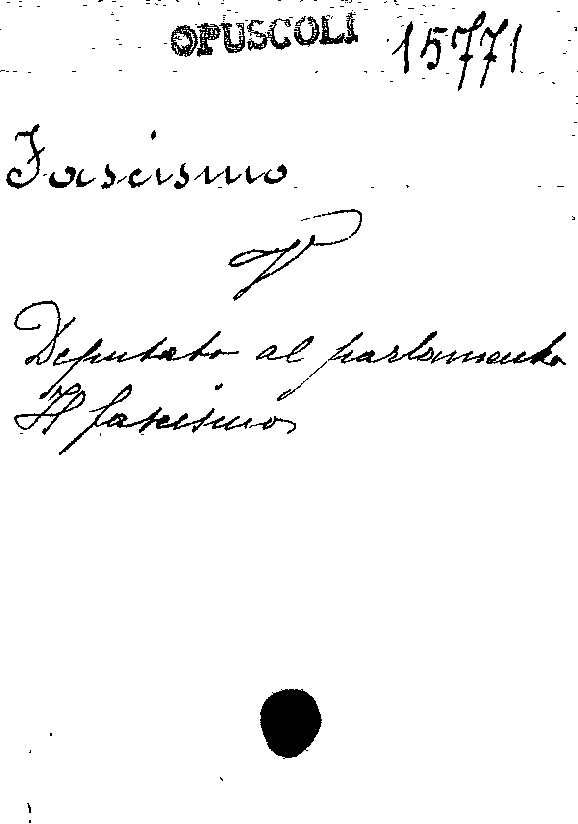 OPUSCOLI 15771
Fascismo
V
Deputato al parlamento
Il fascismo